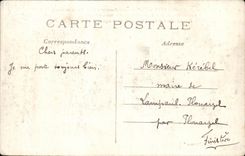 CARTE POSTALE
Correspondance
Adresse
Chers parents
Je me porte toujours bien.
Monsieur Kérébel
maire de
Lampaul-Plouarzel
par Plouarzel
Finistère